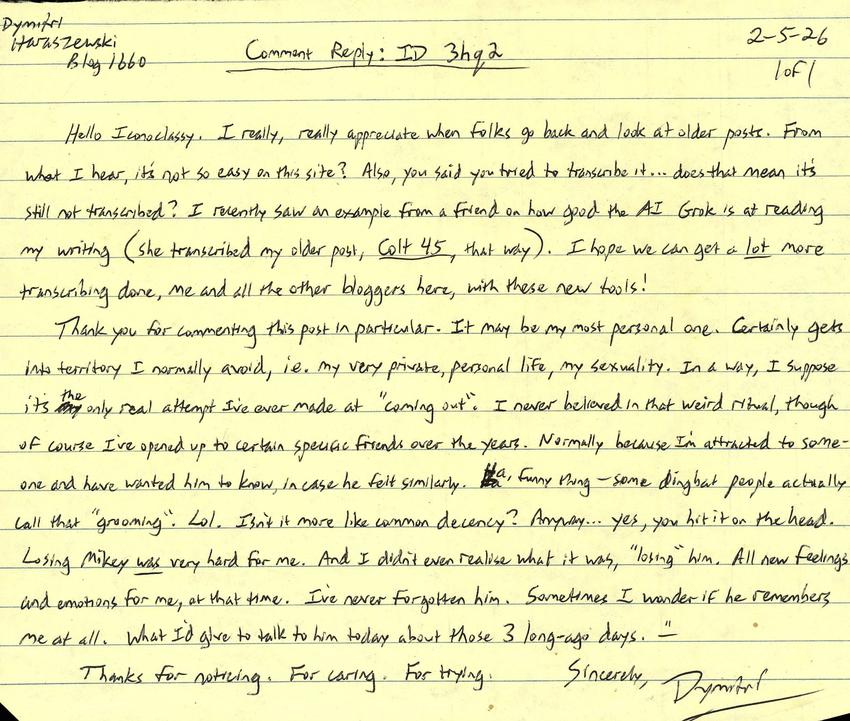 Dymitri
Haraszewski
Blog 1660
Comment Reply: ID 3hq2
2-5-26
1 of 1
Hello Iconoclassy. I really, really appreciate when folks go back and look at older posts. From
what I hear, it's not so easy on this site? Also, you said you tried to transcribe it... does that mean it's
still not transcribed? I recently saw an example from a friend on how good the AI Grok is at reading
my writing (she transcribed my older post, Colt 45, that way). I hope we can get a lot more
transcribing done, me and all the other bloggers here, with these new tools!
Thank you for commenting this post in particular. It may be my most personal one. Certainly gets
into territory I normally avoid, i.e. my very private, personal life, my sexuality. In a way, I suppose
it's the only real attempt I've ever made at "coming out". I never believed in that weird ritual, though
of course I've opened up to certain specific friends over the years. Normally because I'm attracted to some-
one and have wanted him to know, in case he felt similarly. Ha, funny thing – some dingbat people actually
call that "grooming". Lol. Isn't it more like common decency? Anyway... yes, you hit it on the head.
Losing Mikey was very hard for me. And I didn't even realise what it was, "losing" him. All new feelings
and emotions for me, at that time. I've never forgotten him. Sometimes I wonder if he remembers
me at all. What I'd give to talk to him today about those 3 long-ago days.
Thanks for noticing. For caring. For trying. Sincerely, Dymitri